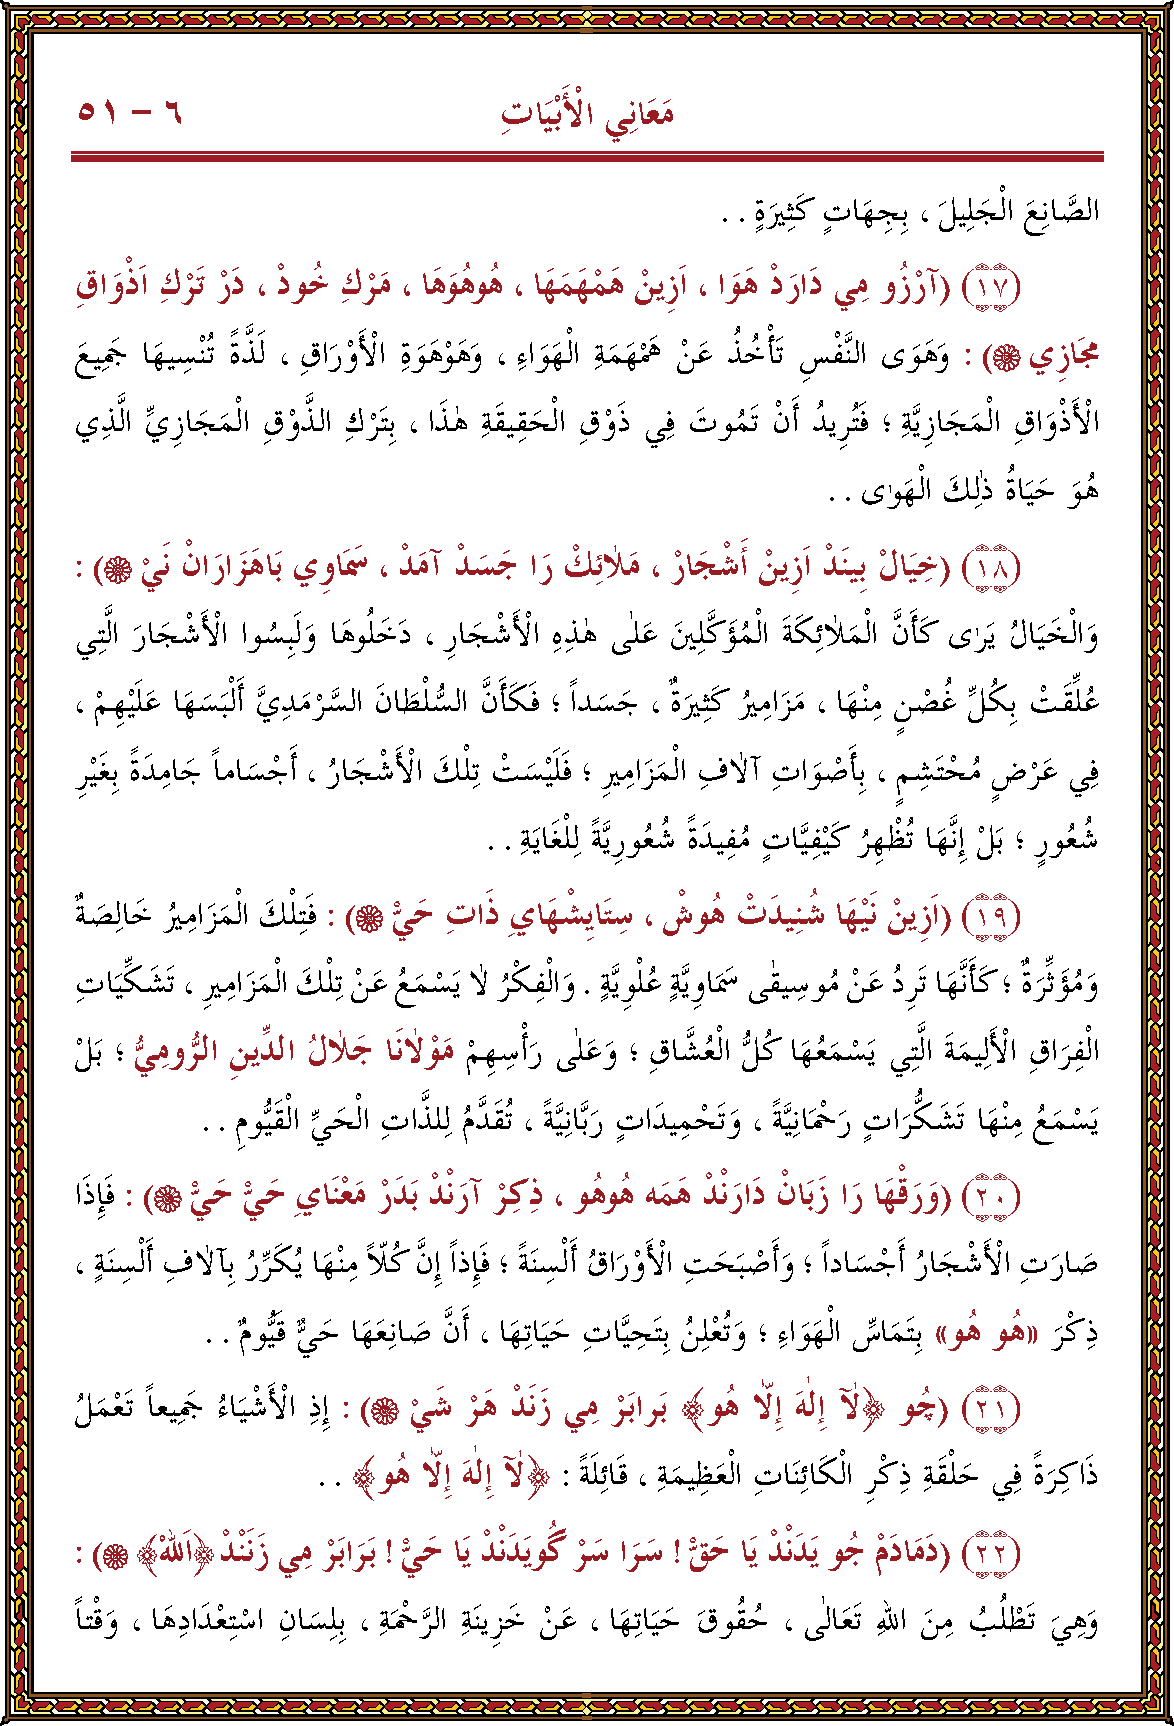 مَعَانِي الْأَبْيَاتِ ٦ – ٥١
الصَّانِعَ الْجَلِيلَ ، بِجِهَاتٍ كَثِيرَةٍ . .
(١٧) (آرْزُو مِي دَارَدْ هَوَا ، اَزِينْ هَمْهَمَهَا ، هُوهُوَهَا ، مَرْكِ خُودْ ، دَرْ تَرْكِ اَذْوَاقِ
مَجَازِي ۞) : وَهَوَى النَّفْسِ تَأْخُذُ عَنْ هَمْهَمَةِ الْهَوَاءِ ، وَهَوْهَوَةِ الْأَوْرَاقِ ، لَذَّةً تُنْسِيهَا جَمِيعَ
الْأَذْوَاقِ الْمَجَازِيَّةِ ؛ فَتُرِيدُ أَنْ تَمُوتَ فِي ذَوْقِ الْحَقِيقَةِ هٰذَا ، بِتَرْكِ الذَّوْقِ الْمَجَازِيِّ الَّذِي
هُوَ حَيَاةُ ذٰلِكَ الْهَوٰى . .
(١٨) (خِيَالْ بِينَدْ اَزِينْ أَشْجَارْ ، مَلٰائِكْ رَا جَسَدْ آمَدْ ، سَمَاوِي بَاهَزَارَانْ نَيْ ۞) :
وَالْخَيَالُ يَرٰى كَأَنَّ الْمَلٰائِكَةَ الْمُؤَكَّلِينَ عَلٰى هٰذِهِ الْأَشْجَارِ ، دَخَلُوهَا وَلَبِسُوا الْأَشْجَارَ الَّتِي
عُلِّقَتْ بِكُلِّ غُصْنٍ مِنْهَا ، مَزَامِيرُ كَثِيرَةٌ ، جَسَداً ؛ فَكَأَنَّ السُّلْطَانَ السَّرْمَدِيَّ أَلْبَسَهَا عَلَيْهِمْ ،
فِي عَرْضٍ مُحْتَشِمٍ ، بِأَصْوَاتِ آلٰافِ الْمَزَامِيرِ ؛ فَلَيْسَتْ تِلْكَ الْأَشْجَارُ ، أَجْسَاماً جَامِدَةً بِغَيْرِ
شُعُورٍ ؛ بَلْ إِنَّهَا تُظْهِرُ كَيْفِيَّاتٍ مُفِيدَةً شُعُورِيَّةً لِلْغَايَةِ . .
(١٩) (اَزِينْ نَيْهَا شُنِيدَتْ هُوشْ ، سِتَايِشْهَايِ ذَاتِ حَيّْ ۞) : فَتِلْكَ الْمَزَامِيرُ خَالِصَةٌ
وَمُؤَثِّرَةٌ ؛ كَأَنَّهَا تَرِدُ عَنْ مُوسِيقٰى سَمَاوِيَّةٍ عُلْوِيَّةٍ . وَالْفِكْرُ لٰا يَسْمَعُ عَنْ تِلْكَ الْمَزَامِيرِ ، تَشَكِّيَاتِ
الْفِرَاقِ الْأَلِيمَةَ الَّتِي يَسْمَعُهَا كُلُّ الْعُشَّاقِ ؛ وَعَلٰى رَأْسِهِمْ مَوْلٰانَا جَلٰالُ الدِّينِ الرُّومِيُّ ؛ بَلْ
يَسْمَعُ مِنْهَا تَشَكُّرَاتٍ رَحْمَانِيَّةً ، وَتَحْمِيدَاتٍ رَبَّانِيَّةً ، تُقَدَّمُ لِلذَّاتِ الْحَيِّ الْقَيُّومِ . .
(٢٠) (وَرَقْهَا رَا زَبَانْ دَارَنْدْ هَمَه هُوهُو ، ذِكِرْ آرَنْدْ بَدَرْ مَعْنَايِ حَيُّ حَيّْ ۞) : فَإِذَا
صَارَتِ الْأَشْجَارُ أَجْسَاداً ؛ وَأَصْبَحَتِ الْأَوْرَاقُ أَلْسِنَةً ؛ فَإِذاً إِنَّ كُلّاً مِنْهَا يُكَرِّرُ بِآلٰافِ أَلْسِنَةٍ ،
ذِكْرَ «هُو هُو» بِتَمَاسِّ الْهَوَاءِ ؛ وَتُعْلِنُ بِتَحِيَّاتِ حَيَاتِهَا ، أَنَّ صَانِعَهَا حَيٌّ قَيُّومٌ . .
(٢١) (چُو ﴿لٰآ إِلٰهَ إِلّٰا هُو﴾ بَرابَرْ مِي زَنَدْ هَرْ شَيْ ۞) : إِذِ الْأَشْيَاءُ جَمِيعاً تَعْمَلُ
ذَاكِرَةً فِي حَلْقَةِ ذِكْرِ الْكَائِنَاتِ الْعَظِيمَةِ ، قَائِلَةً : ﴿لٰآ إِلٰهَ إِلّٰا هُو﴾ . .
(٢٢) (دَمَادَمْ جُو يَدَنْدْ يَا حَقّْ ! سَرَا سَرْ گُويَدَنْدْ يَا حَيّْ ! بَرَابَرْ مِي زَنَنْدْ ﴿اَللّٰهْ﴾ ۞) :
وَهِيَ تَطْلُبُ مِنَ اللّٰهِ تَعَالٰى ، حُقُوقَ حَيَاتِهَا ، عَنْ خَزِينَةِ الرَّحْمَةِ ، بِلِسَانِ اسْتِعْدَادِهَا ، وَقْتاً